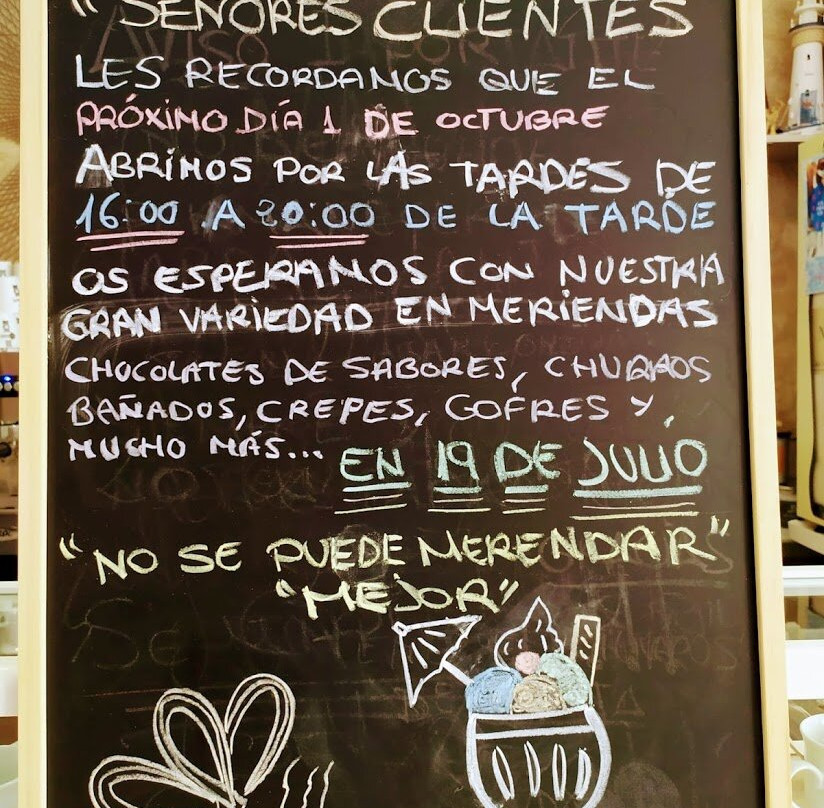 "SEÑORES CLIENTES
LES RECORDAMOS QUE EL
PRÓXIMO DÍA 1 DE OCTUBRE
ABRIMOS POR LAS TARDES DE
16:00 A 20:00 DE LA TARDE
OS ESPERAMOS CON NUESTRA
GRAN VARIEDAD EN MERIENDAS
CHOCOLATES DE SABORES, CHURROS
BAÑADOS, CREPES, GOFRES Y,
MUCHO MÁS...
EN 19 DE JULIO
"NO SE PUEDE MERENDAR"
"MEJOR"